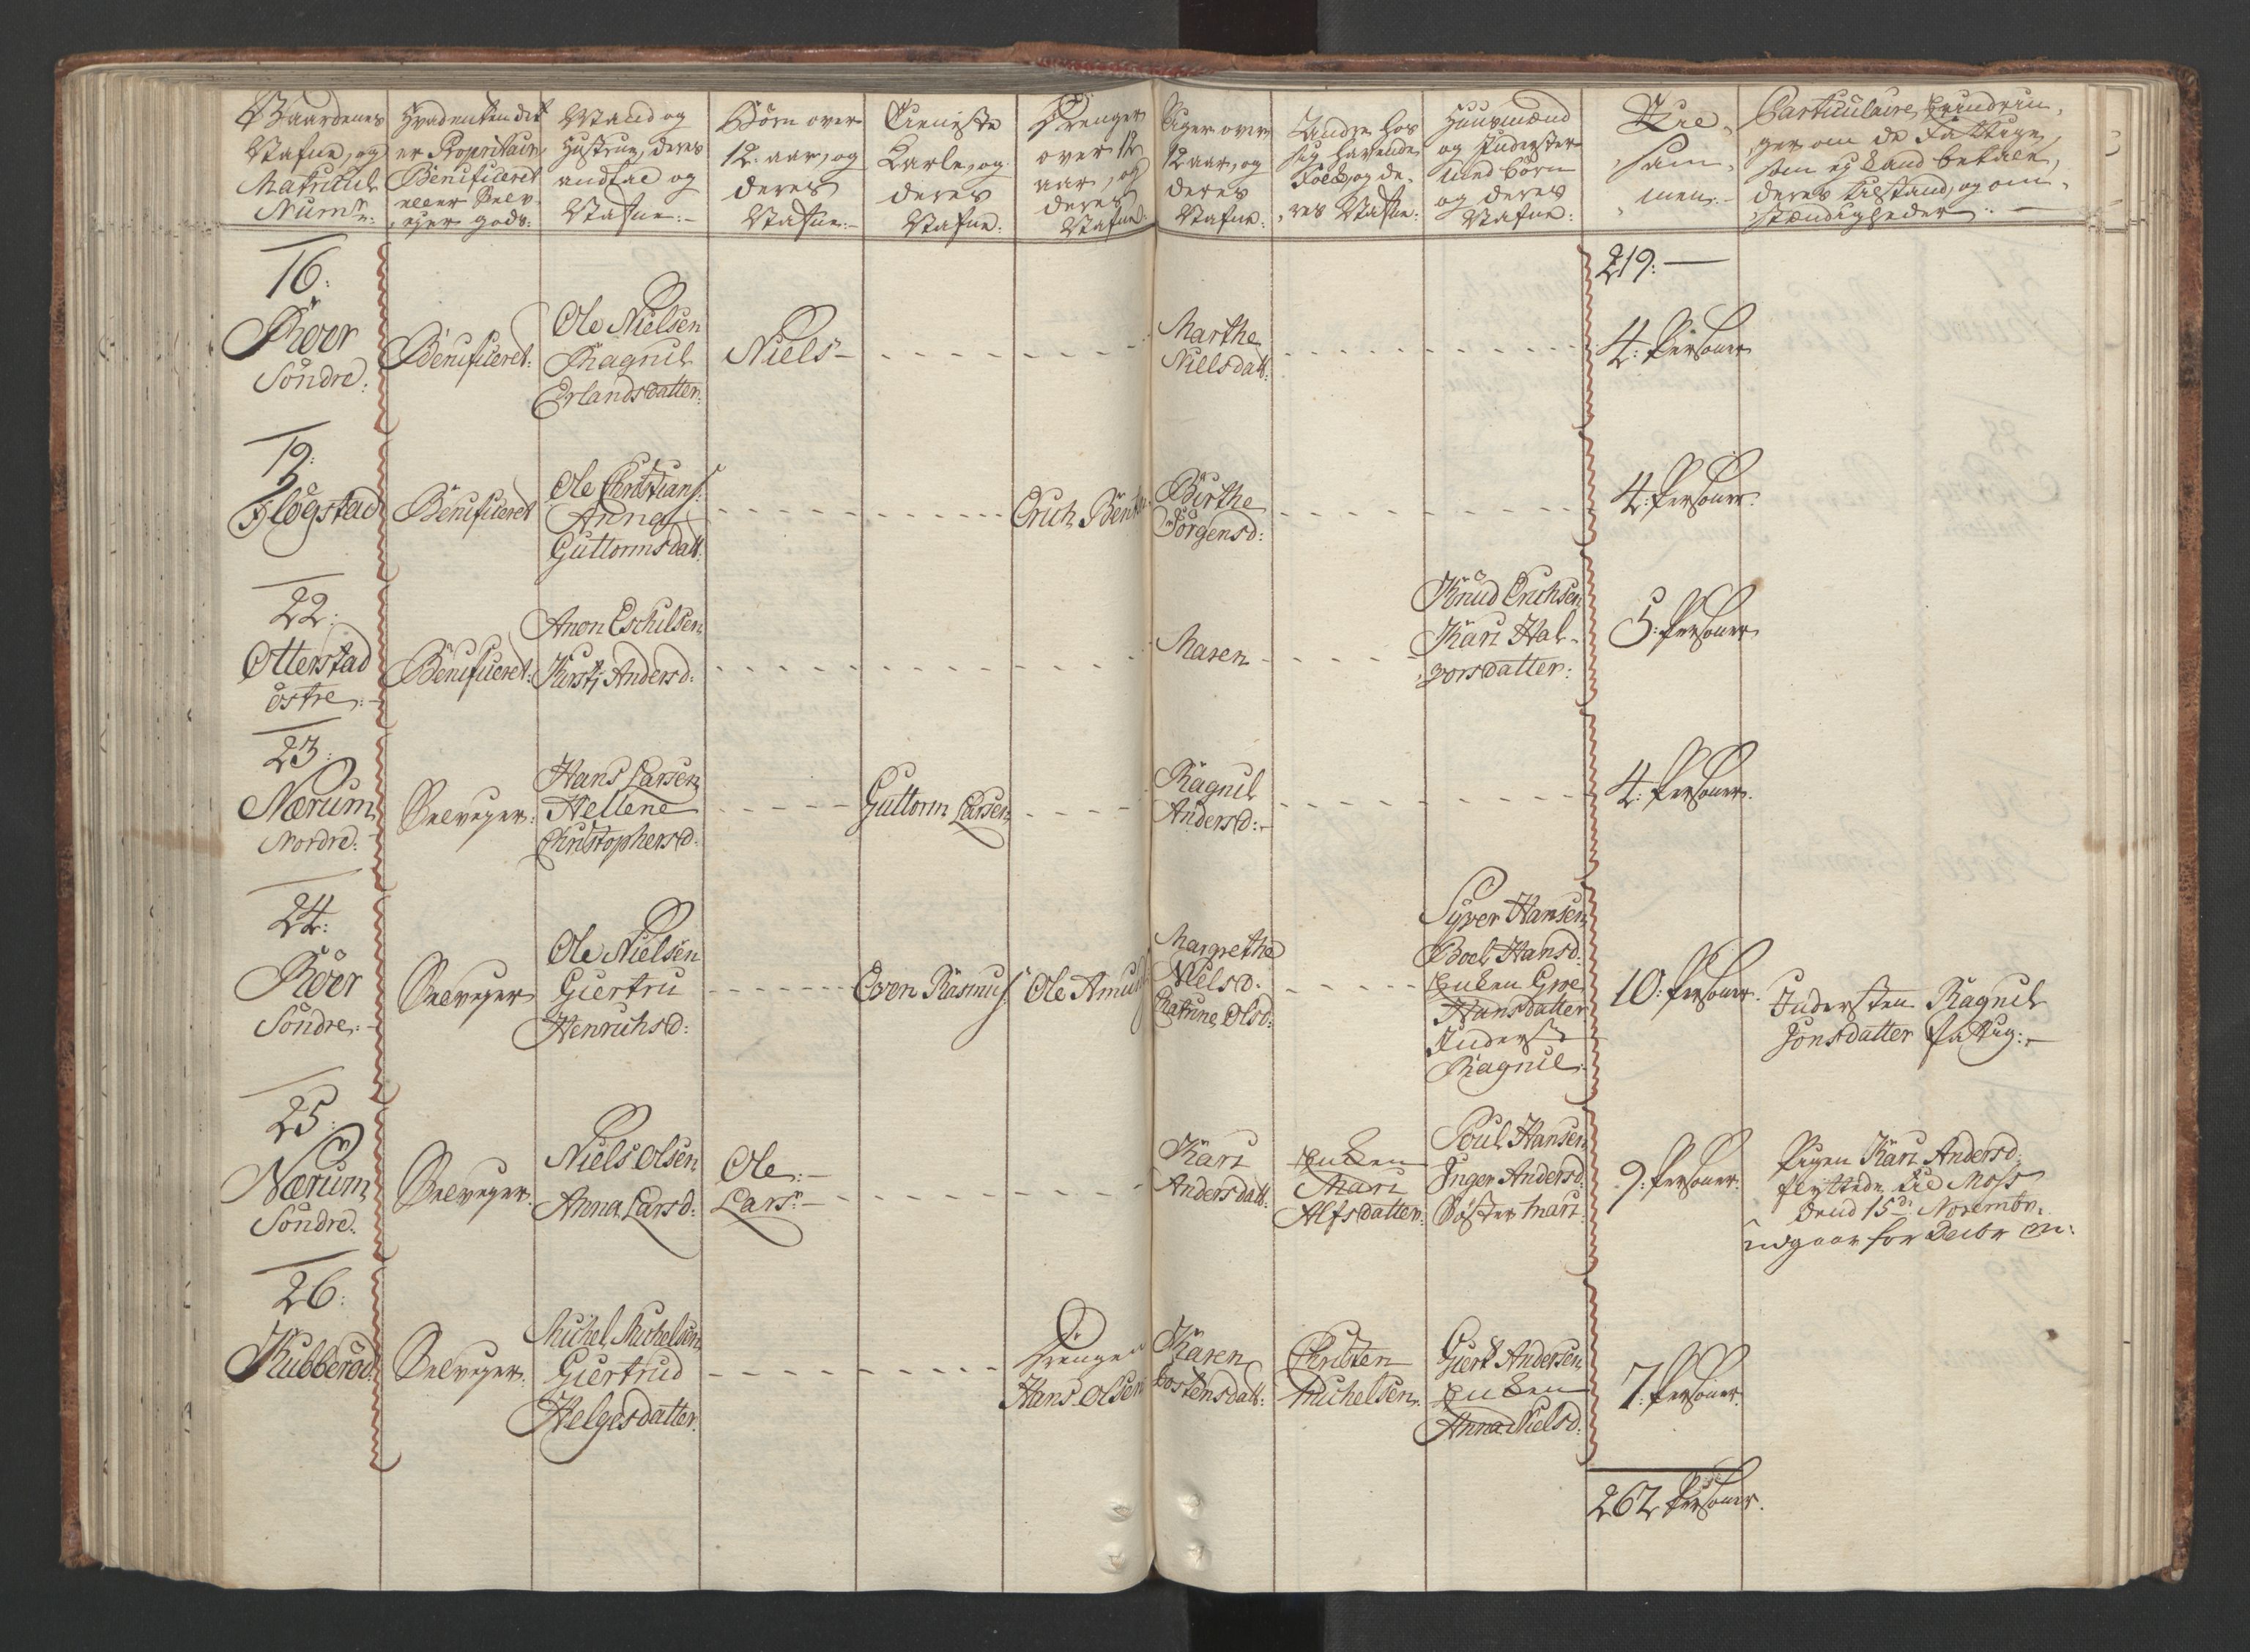 Gaardenes
Nafne, og
Matricul
Num:
Hvadenten det
er Proprietair,
Beneficeret
eller Selv-
ejer gods:
Mand og
Hustrue, deres
andtal og
Nafne:-
Børn over
12. aar, og
deres
Nafne:-
Tieniste
Karle, og
deres
Nafne:
Drenger
over 12
aar, og
deres
Nafne:
Piger over
12 aar, og
deres
Nafne:
Andre hos
sig havende
Folck, og de-
res Nafne:
Huusmænd
og Inderster
med børn
og deres
Nafne:
Til-
sam-
men:-
Particulaire Erindrin-
ger om de Fattige,
som ej kand betale,
deres tilstand, og om-
stændigheder:-
219:-
16:
Röer
Söndre:
Beneficeret:
Ole Nielsen
Ragnil
Erlandsdatter:
Niels-
Marthe
Nielsdatt:
4: Personer
19:
Flögstad
Beneficeret
Ole Christians:
Anna
Guttormsdatt:
Erich Bents
Birthe
Jörgensd:
4: Personer.
22:
Otterstad
östre:-
Beneficeret:
Anon Eschilsen
Kirsti Andersd:
Maren
Knud Erichsen
Kari Hal-
vorsdatter:
5: Personer
23:
Nærum
Nordre:
Selvejer:
Hans Larsen
Hellene
Christophersd:
Guttorm Larsen
Ragnil
Andersd:-
4: Personer.
24:
Röer
Söndre:-
Selvejer
Ole Nielsen
Giertru
Henrichsd:
Even Rasmus:
Ole Amunds
Margrethe
Nielsd:
Catrine Olsd:
Syver Hansen
Boel Hansd:
Enken Groe
Hansdatter
Inderst
Ragnil:
10: Personer.
Indersten Ragnil
Jonsdatter fattig:-
25:
Nærum
Söndre:
Selvejer:
Niels Olsen
Anna Larsd:
Ole:-
Lars:-
Kari
Andersdatt:
Enken
Mari
Alfsdatter:
Poul Hansen
Inger Andersd:
Söster Mari:
9: Personer:
Pigen Kari Andersd:
flyttede til Moss
dend 15d: Novembr:
udgaar for Decbr M:
26:
Kubberöd
Selvejer:
Michel Michelsen
Giertrud
Helgesdatter:
Drengen
Hans Olsen
Karen
Tostensdatt:
Christen
Michelsen
Giert Andersen
Enken
Anna Nielsd:
7: Personer.
262 Personer.